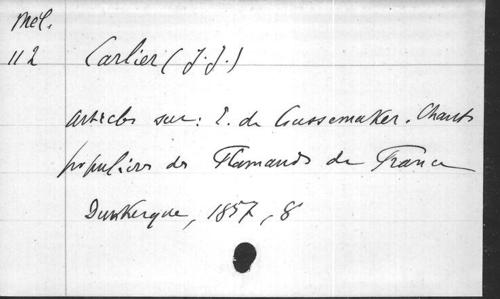 Mél.
112 Carlier (J.J.)
articles sur : E. de Coussemaker. Chants
populaires des Flamands de France
Dunkerque, 1857, 8°